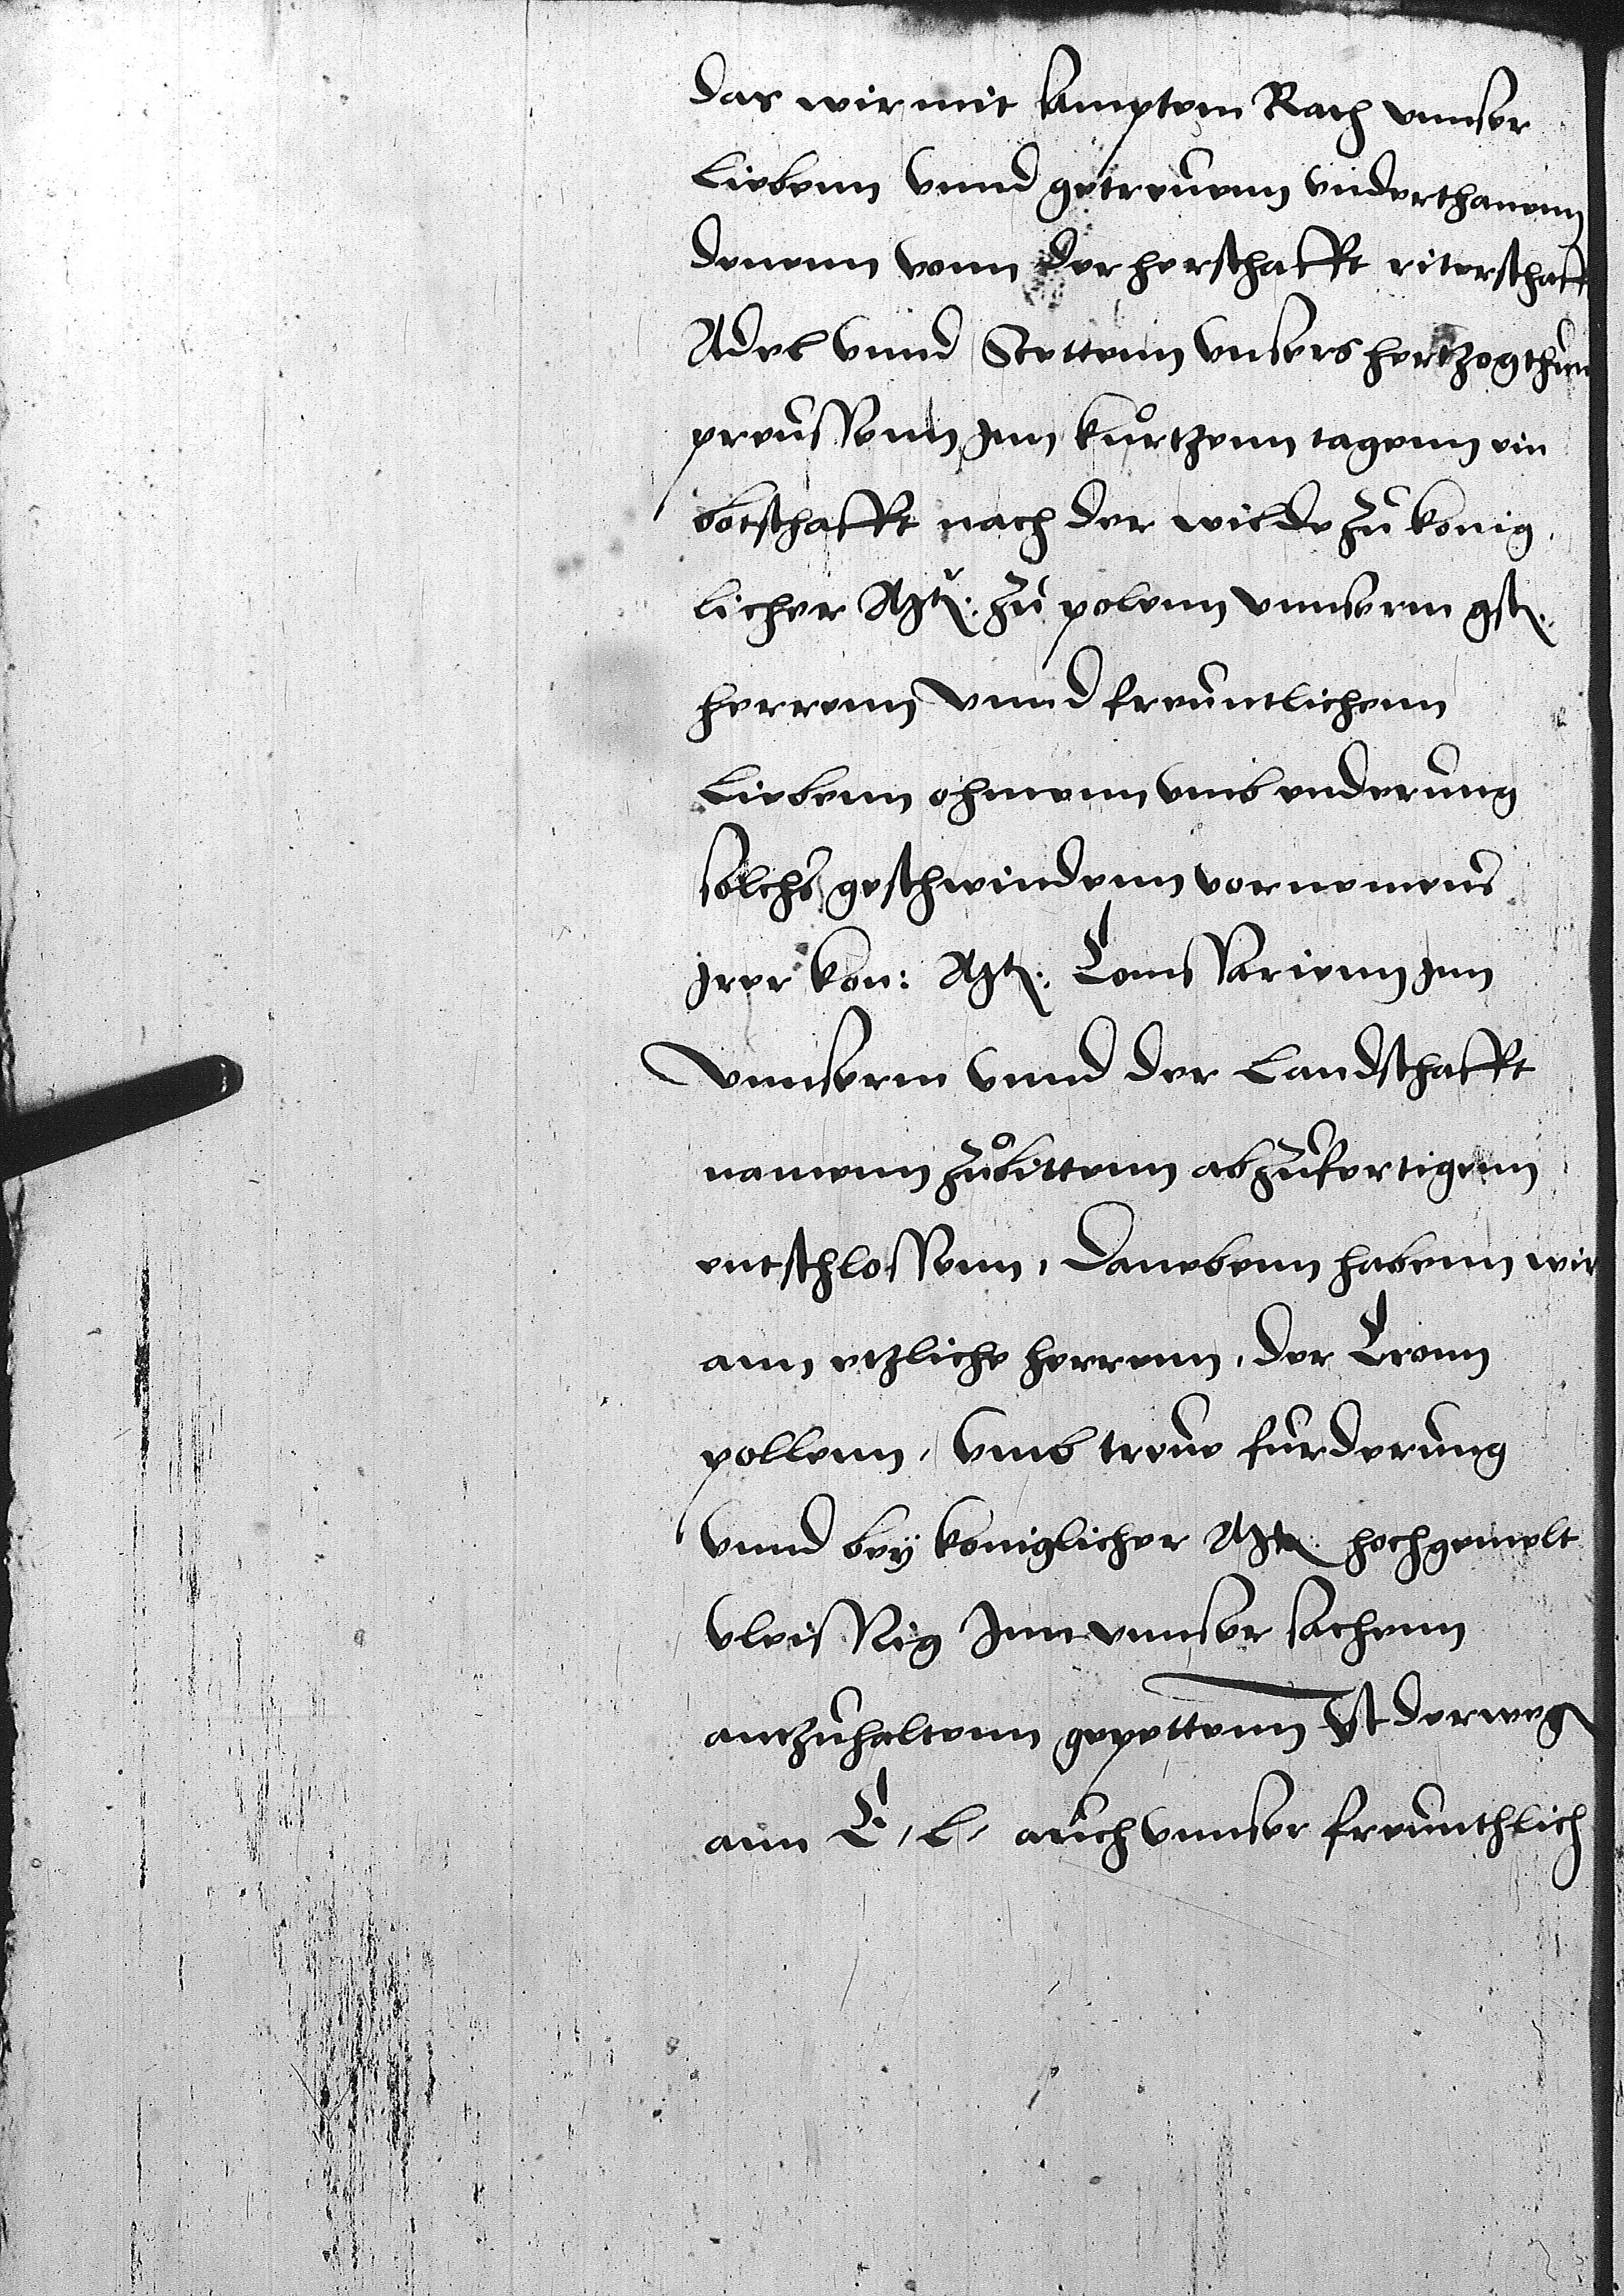 das wir mit samptem Rath vnnser
Liebenn vnnd getreuenn vnderthanenn
denenn vonn der herschafft riterschafft
Adel vnnd Stettenn vnsers hertzogthum
preussenn Jnn kurtzenn tagenn ein
botschafft nach der wilde zu konig
licher Mt: zu polenn vnnserm gst:
herrenn vnnd freuntlichenn
Liebenn ohmenn vmb enderung
solchs geschwindenn vornemens
Jrer kon: Mt: Comissarienn Jnn
vnnserm vnnd der Landschafft
namenn zubittenn abzufertigenn
entschlossenn, Danebenn habenn wir
ann etzliche herrenn, der Cronn
pollenn, vmb treue furderung
vnnd bey koniglicher Mt: hochgemelt
vleissig Jnn vnnser sachenn
antzuhaltenn gepettenn Ist derweg
ann E, L, auch vnnser freunthlich